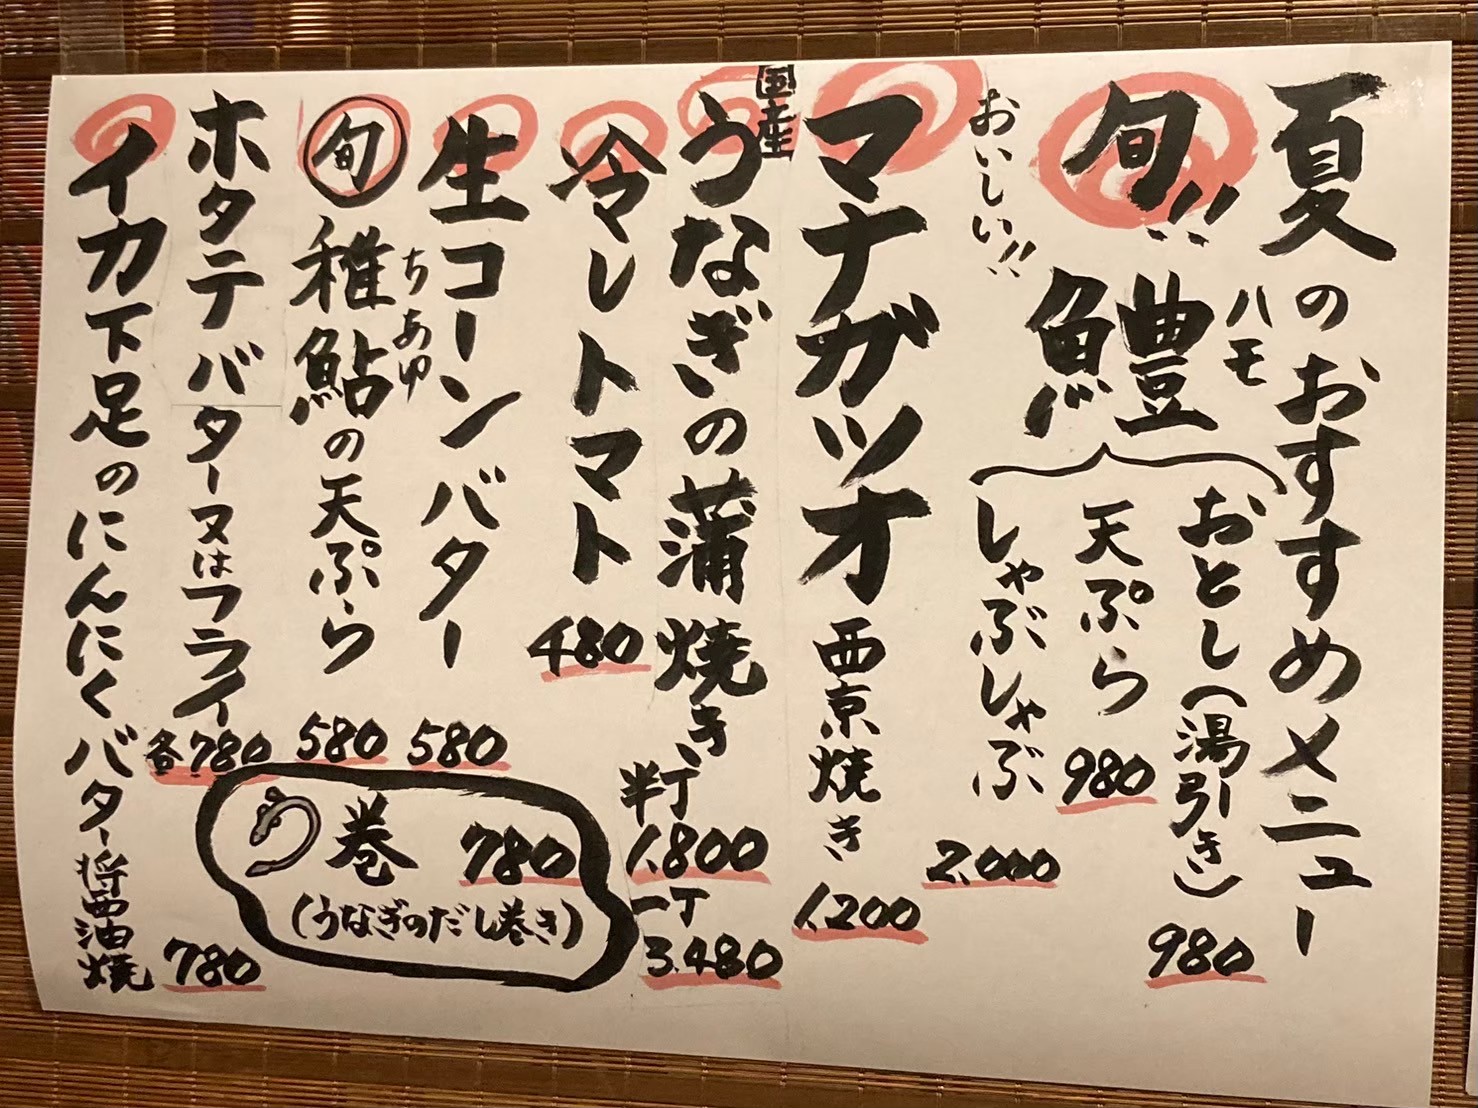 夏のおすすめメニュー
旬!!
鱧
ハモ
おとし(湯引き)
980
天ぷら
980
おいしい!!
しゃぶしゃぶ
2.000
マナガツオ西京焼き
1.200
国産
うなぎの蒲焼き
半丁
1.800
一丁
3.480
冷しトマト
480
生コーンバター
580
旬
稚鮎の天ぷら
ちあゆ
580
ホタテバター又はフライ
各780
う巻
780
(うなぎのだし巻き)
イカ下足のにんにくバター醤油焼
780